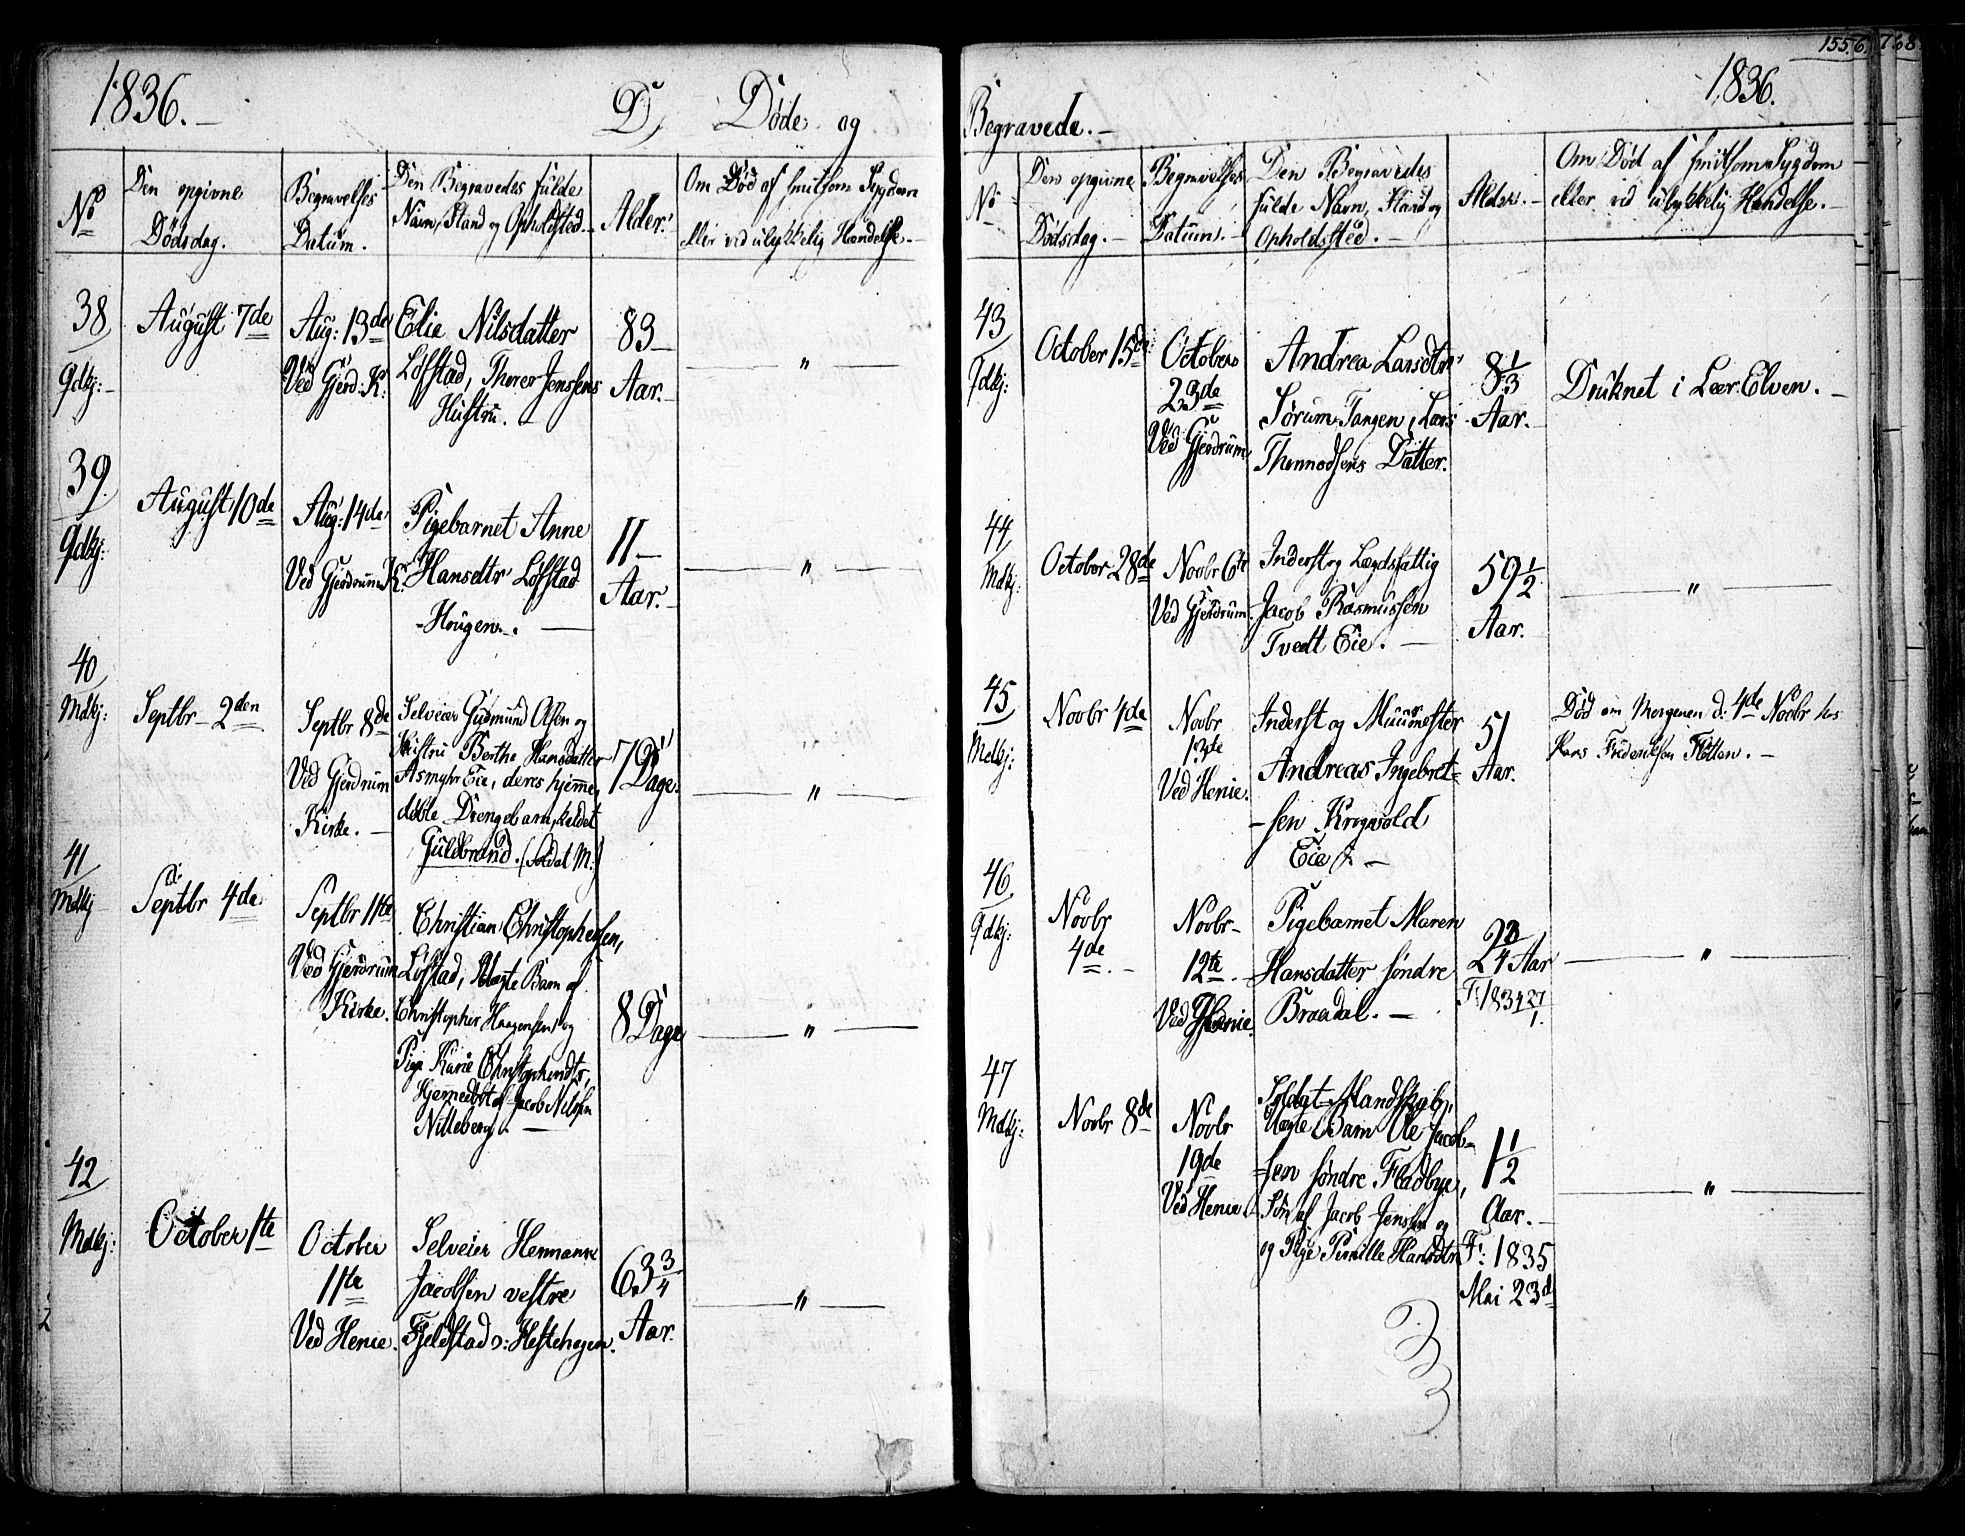 1836.
D, Døde og
No
Den opgivne
Dødsdag.
Begravelses
Datum.
Den Begravedes fulde
Navn, Stand og Opholdsted.
Alder.
Om Død af smitsom Sygdom
eller ved ulykkelig Hændelse.
38
Qdkj:
August 7de
Aug: 13de
Ved Gjerd: K:
Elie Nilsdatter
Løfstad, Thorer Jensens
Hustru.
83
Aar.
"
39
Qdkj:
August 10de
Aug: 14de
Ved Gjerdrum K:
Pigebarnet Anne
Hansdtr Løfstad
Hougen.
11
Aar.
"
40
Mdkj:
Septbr 2den
Septbr 8de
Ved Gjerdrum
Kirke.
Selveier Gudmund Olsen og
Hustru Berthe Hansdatter
Asmyhr Eie, deres hjemme
døbte Drengebarn, kaldet
Guldbrand. (Soldat M:)
7 Dage.
"
41
Mdkj
Septbr 4de
Septbr 11te
Ved Gjerdrum
Kirke.
Christian Christophersen,
Løfstad, Uægte Barn af
Christopher Haagensen og
Pige Karie Christophersdtr,
Hjemmedøbt af Jacob Nilsen
Nilleberg.
8 Dage
"
42
Mdkj:
October 1te
October
11te
Ved Henie.
Selveier Hermann
Jacobsen vestre
Fjeldstad o: Hestehagen.
63 3/4
Aar.
"
1556. 768
1836.
Begravede.
No
Den opgivne
Dødsdag.
Begravelses
Datum.
Den Begravedes
fulde Navn, Stand og
Opholdssted.
Alder.
Om Død af smitsom Sygdom
eller ved ulykkelig Hændelse.
43
Qdkj:
October 15de
October
23de
Ved Gjerdrum
Andrea Larsdtr
Sørum Tangen, Lars
Thormodsens Datter.
8 1/3
Aar.
Druknet i Leer Elven.
44
Mdkj:
October 28de
Novbr 6te
Ved Gjerdrum.
Inderst og Lægdsfattig
Jacob Rasmussen
Tvedt Eie.
59 1/2
Aar.
"
45
Mdkj:
Novbr 4de
Novbr
13de
Ved Henie.
Inderst og Muurmester
Andreas Ingebret=
sen Krogvold
Eie
51
Aar.
Død om Morgenen d: 4de Novbr hos
Lars Frederiksen Flatten.
46
Qdkj:
Novbr
4de
Novbr
12te
Ved Henie.
Pigebarnet Maren
Hansdatter søndre
Braadal.
2 3/4 Aar
F: 1834 27/1.
"
47
Mdkj:
Novbr 8de
Novbr
19de
Ved Henie.
Soldat Mandskab,
Uægte Barn Ole Jacob=
sen søndre Fladbye,
Søn af Jacob Jensen og
og Pige Pernille Hansdtr
1 1/2
Aar.
F: 1835
Mai 23d
"